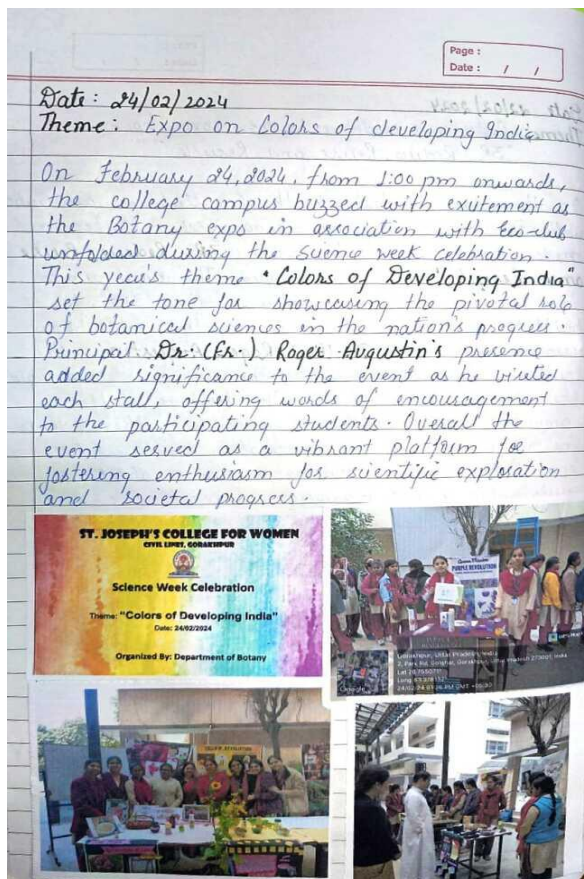 Page :
Date : / /
Date : 24/02/2024
Theme : Expo on Colors of developing India
On February 24, 2024, from 1:00 pm onwards,
the college campus buzzed with excitement as
the Botany expo in association with Eco-club
unfolded during the Science week celebration.
This year's theme "Colors of Developing India"
set the tone for showcasing the pivotal role
of botanical sciences in the nation's progress.
Principal Dr. (Fr.) Roger Augustin's presence
added significance to the event as he visited
each stall, offering words of encouragement
to the participating students. Overall the
event served as a vibrant platform for
fostering enthusiasm for scientific exploration
and societal progress.
ST. JOSEPH'S COLLEGE FOR WOMEN
CIVIL LINES, GORAKHPUR
Science Week Celebration
Theme: "Colors of Developing India"
Date: 24/02/2024
Organized By: Department of Botany
PURPLE REVOLUTION
Gorakhpur, Uttar Pradesh, India
Google